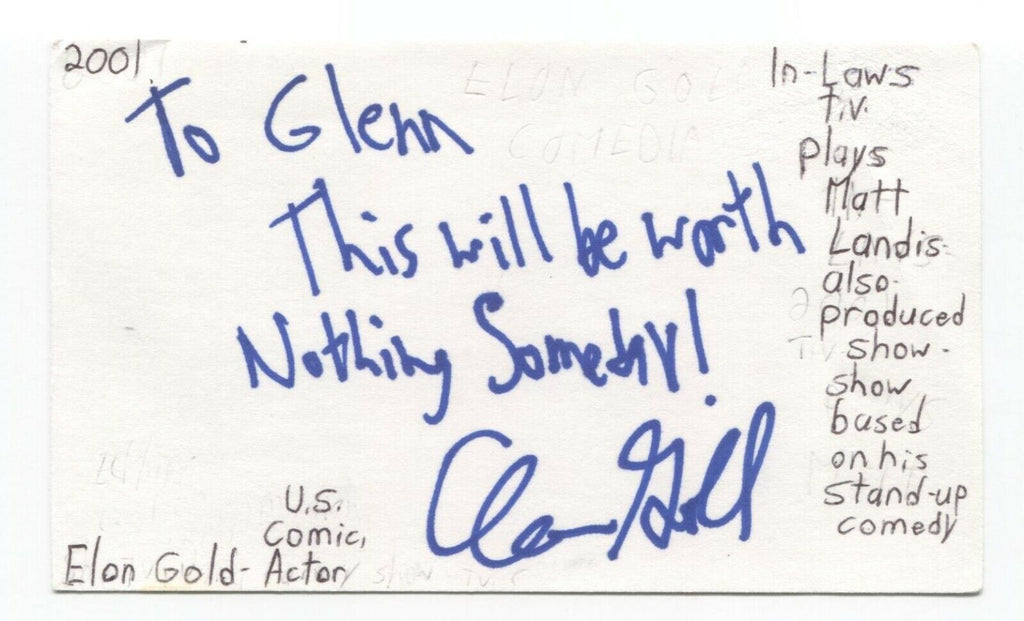 2001
To Glenn
This will be worth
Nothing Someday!
Elon Gold
U.S.
Comic,
Elon Gold- Actor
In-Laws
T.V.
plays
Matt
Landis-
also-
produced
show-
show
based
on his
stand-up
comedy
ELON GOL
COMEDIA